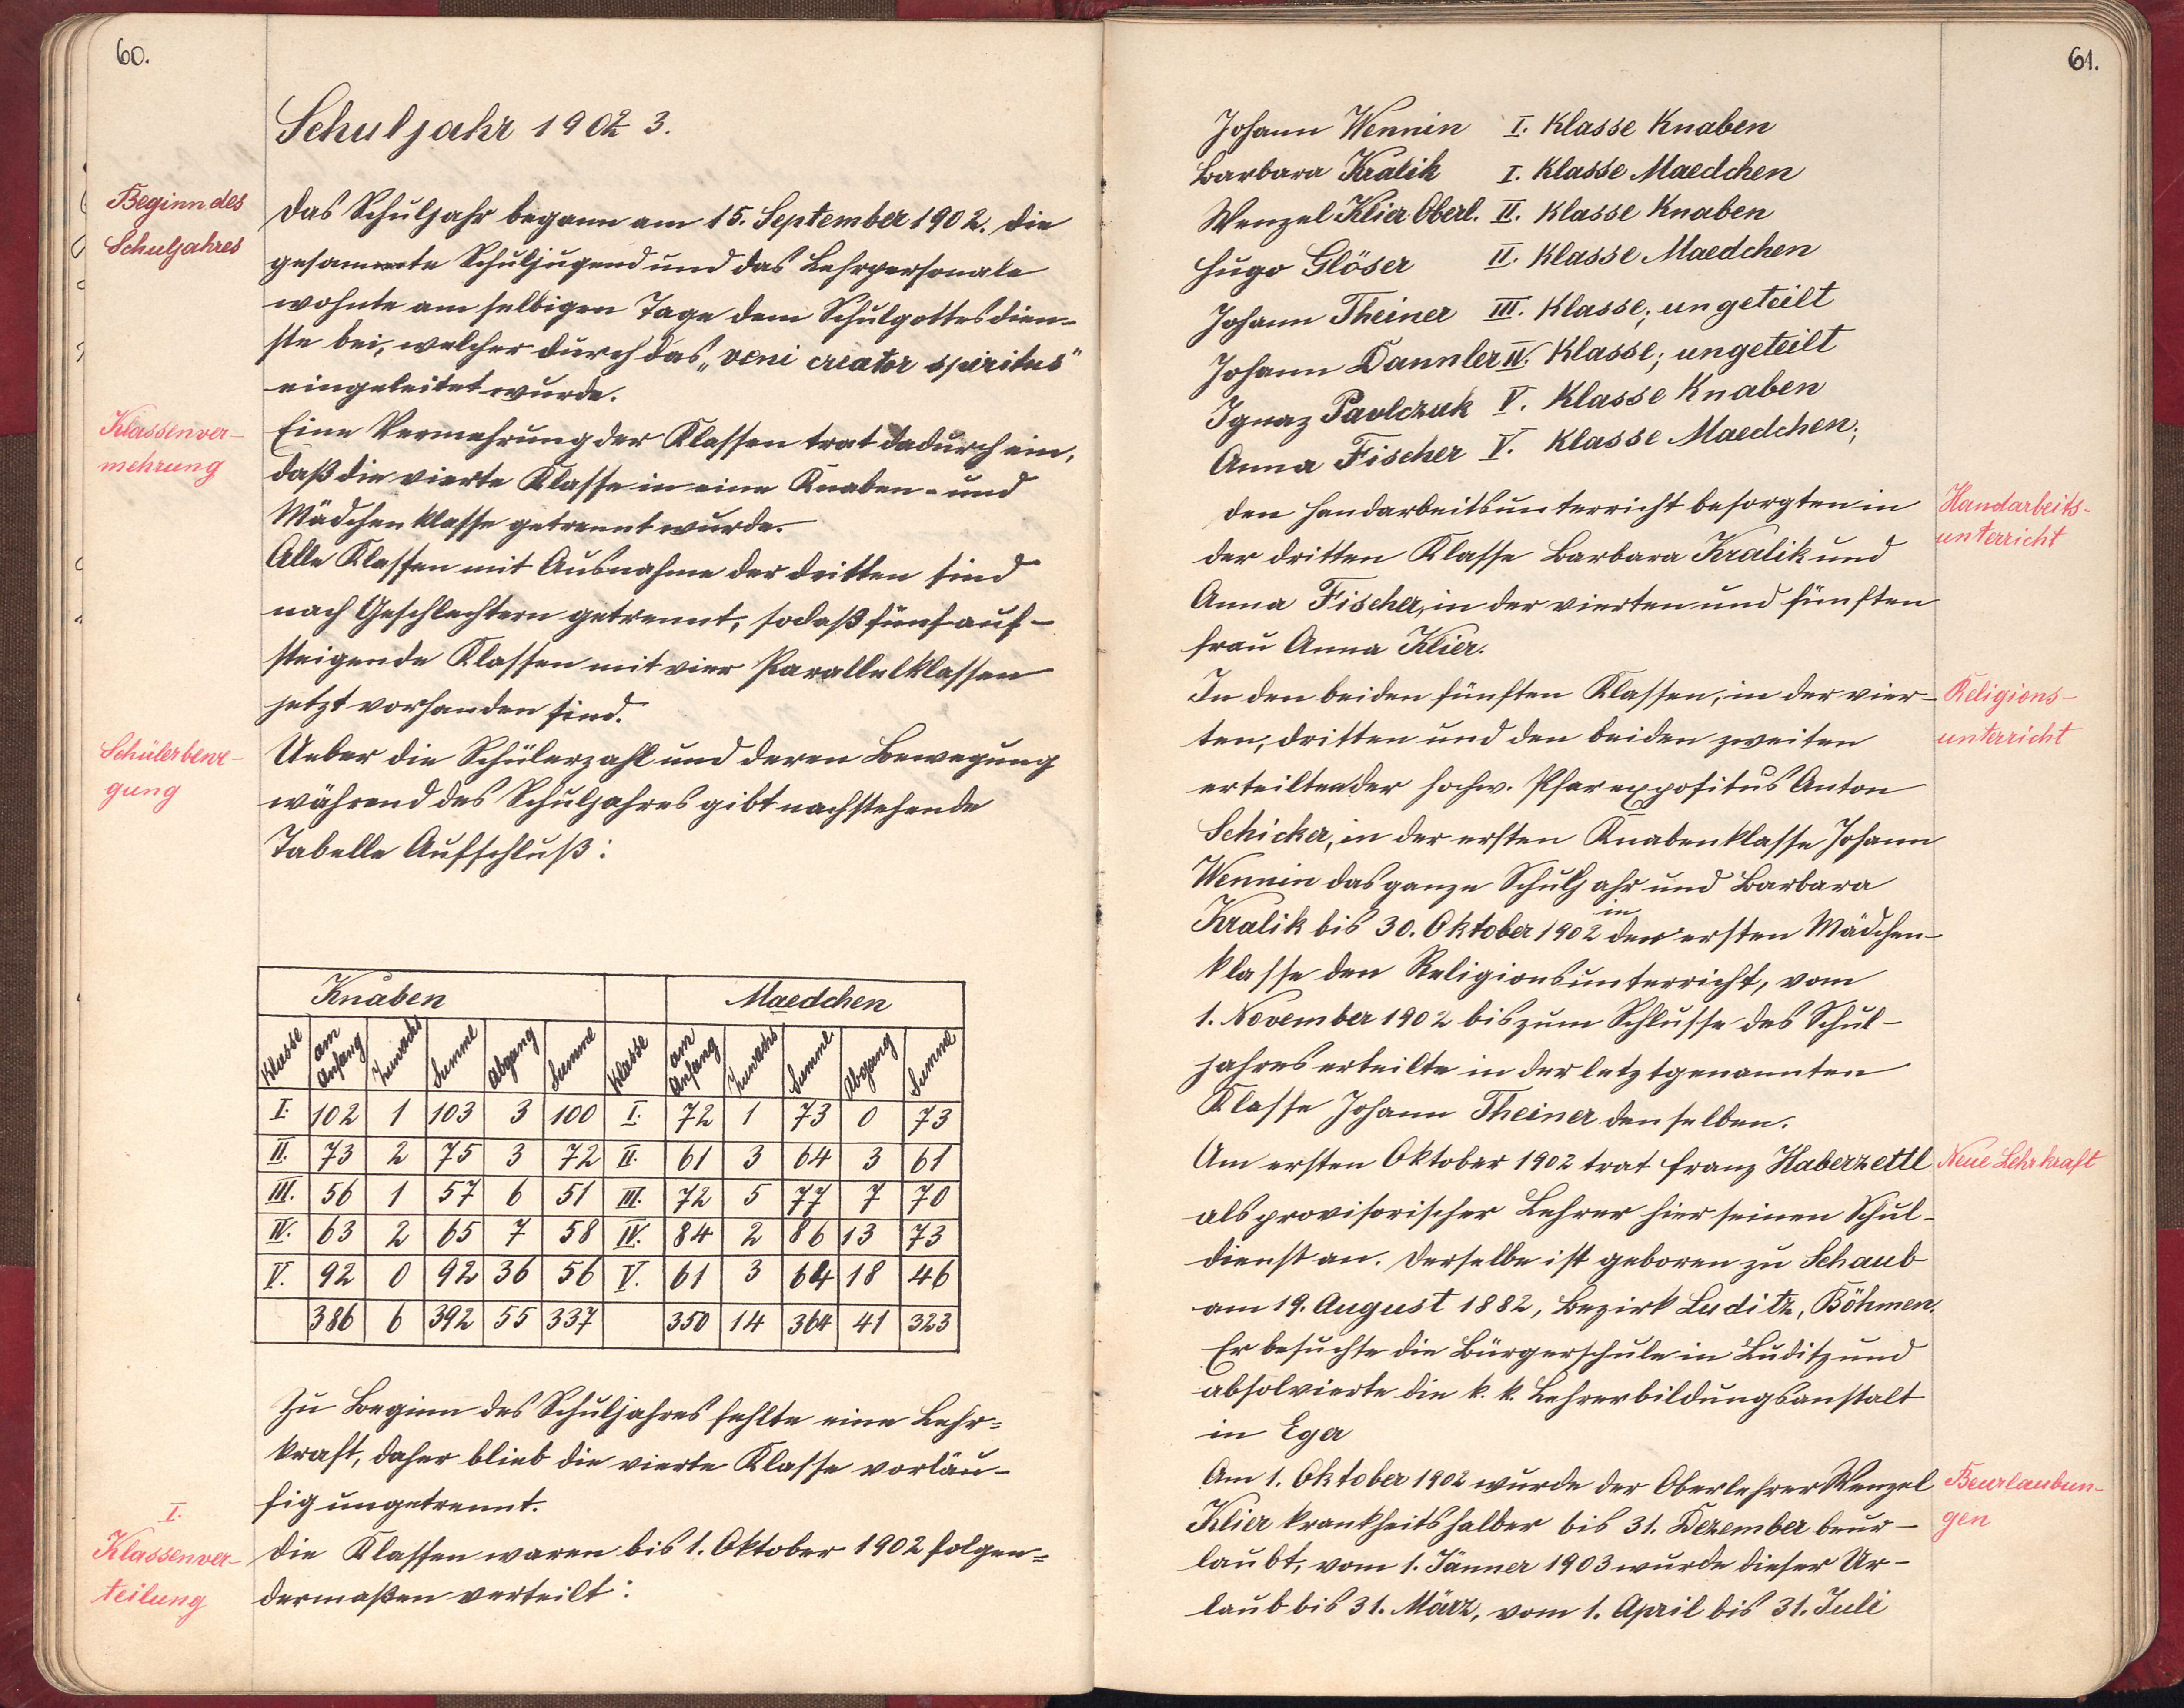 60.
Schuljahr 1902/3.
Beginn des
Schuljahres
Das Schuljahr begann am 15. September 1902. Die
gesammte Schuljugend und das Lehrpersonale
wohnte am selbigen Tage dem Schulgottesdien-
ste bei, welcher durch das „veni creator spiritus"
eingeleitet wurde.
Klassenver-
mehrung
Eine Vermehrung der Klassen trat dadurch ein,
daß die vierte Klasse in eine Knaben- und
Mädchenklasse getrennt wurde.
Alle Klassen mit Ausnahme der dritten sind
nach Geschlechtern getrennt, sodaß fünf auf-
steigende Klassen mit vier Parallelklassen
jetzt vorhanden sind.
Schülerbewe-
gung
Ueber die Schülerzahl und deren Bewegung
während des Schuljahres gibt nachstehende
Tabelle Aufschluß:
Knaben Maedchen
Klasse am Anfang Zuwachs Summe Abgang Summe Klasse am Anfang Zuwachs Summe Abgang Summe
I. 102 1 103 3 100 I. 72 1 73 0 73
II. 73 2 75 3 72 II. 61 3 64 3 61
III. 56 1 57 6 51 III. 72 5 77 7 70
IV. 63 2 65 7 58 IV. 84 2 86 13 73
V. 92 0 92 36 56 V. 61 3 64 18 46
386 6 392 55 337 350 14 364 41 323
Zu Beginn des Schuljahres fehlte eine Lehr-
kraft, daher blieb die vierte Klasse vorläu-
fig ungetrennt.
I.
Klassenver-
teilung
Die Klassen waren bis 1. Oktober 1902 folgen-
dermaßen verteilt:
61.
Johann Wennin I. Klasse Knaben
Barbara Kralik I. Klasse Maedchen
Wenzel Klier Oberl. II. Klasse Knaben
Hugo Glöser II. Klasse Maedchen
Johann Theiner III. Klasse; ungeteilt
Johann Dannler IV. Klasse; ungeteilt
Ignaz Pavlczuk V. Klasse Knaben
Anna Fischer V. Klasse Maedchen;
Handarbeits-
unterricht
den Handarbeitsunterricht besorgten in
der dritten Klasse Barbara Kralik und
Anna Fischer, in der vierten und fünften
Frau Anna Klier.
Religions-
unterricht
In den beiden fünften Klassen, in der vier-
ten, dritten und den beiden zweiten
erteilten der hochw. Pfarrexpositus Anton
Schicker, in der ersten Knabenklasse Johann
Wennin das ganze Schuljahr und Barbara
Kralik bis 30. Oktober 1902 in der ersten Mädchen-
klasse den Religionsunterricht, vom
1. November 1902 bis zum Schlusse des Schul-
jahres erteilte in der letztgenannten
Klasse Johann Theiner denselben.
Neue Lehrkraft
Am ersten Oktober 1902 trat Franz Haberzettl
als provisorischer Lehrer hier seinen Schul-
dienst an. Derselbe ist geboren zu Schaub
am 19. August 1882, Bezirk Luditz, Böhmen.
Er besuchte die Bürgerschule in Luditz und
absolvierte die k. k. Lehrerbildungsanstalt
in Eger
Beurlaubun-
gen
Am 1. Oktober 1902 wurde der Oberlehrer Wenzel
Klier krankheitshalber bis 31. Dezember beur-
laubt, vom 1. Jänner 1903 wurde dieser Ur-
laub bis 31. März, vom 1. April bis 31. Juli